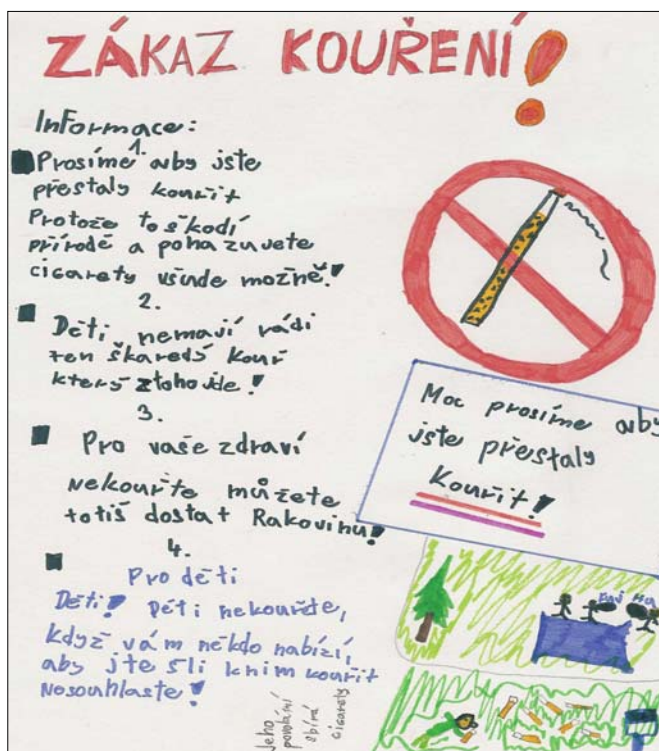 ZÁKAZ KOUŘENÍ!
Informace:
1.
Prosíme aby jste
přestaly kouřit
Protože to škodí
přírodě a pohazuvete
cigarety všude možně!
2.
Děti nemají rádi
ten škaredý kouř
který ztoho jde!
3.
Pro vaše zdraví
nekouřte můžete
totiš dostat Rakovinu!
4.
Pro děti
Děti! Děti nekouřte,
když vám někdo nabízí,
aby jte šli kním kouřit
Nesouhlaste!
Moc prosíme aby
jste přestaly
kouřit!
Jeho
povolání
sbírá
cigarety